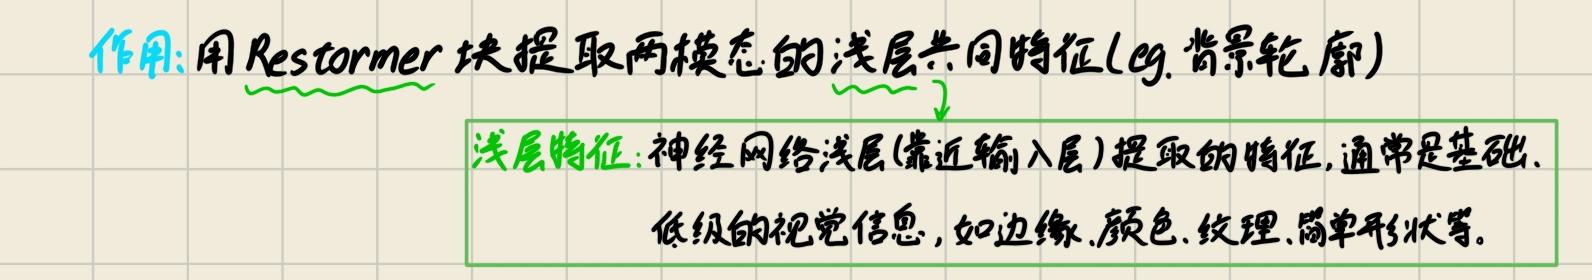 作用:用Restormer块提取两模态的浅层共同特征(eg.背景轮廓)
浅层特征:神经网络浅层(靠近输入层)提取的特征,通常是基础、
低级的视觉信息,如边缘、颜色、纹理、简单形状等。